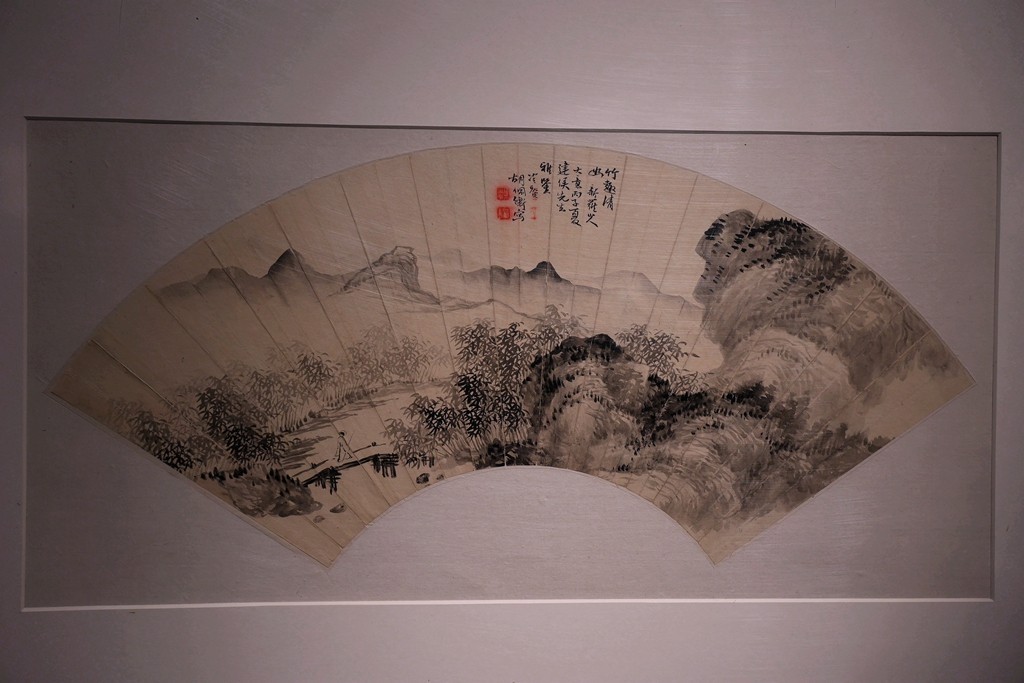 竹 清
幽 新羅山人
大意丙子夏
建侯先生
雅鑒
冷盦
胡佩衡寫